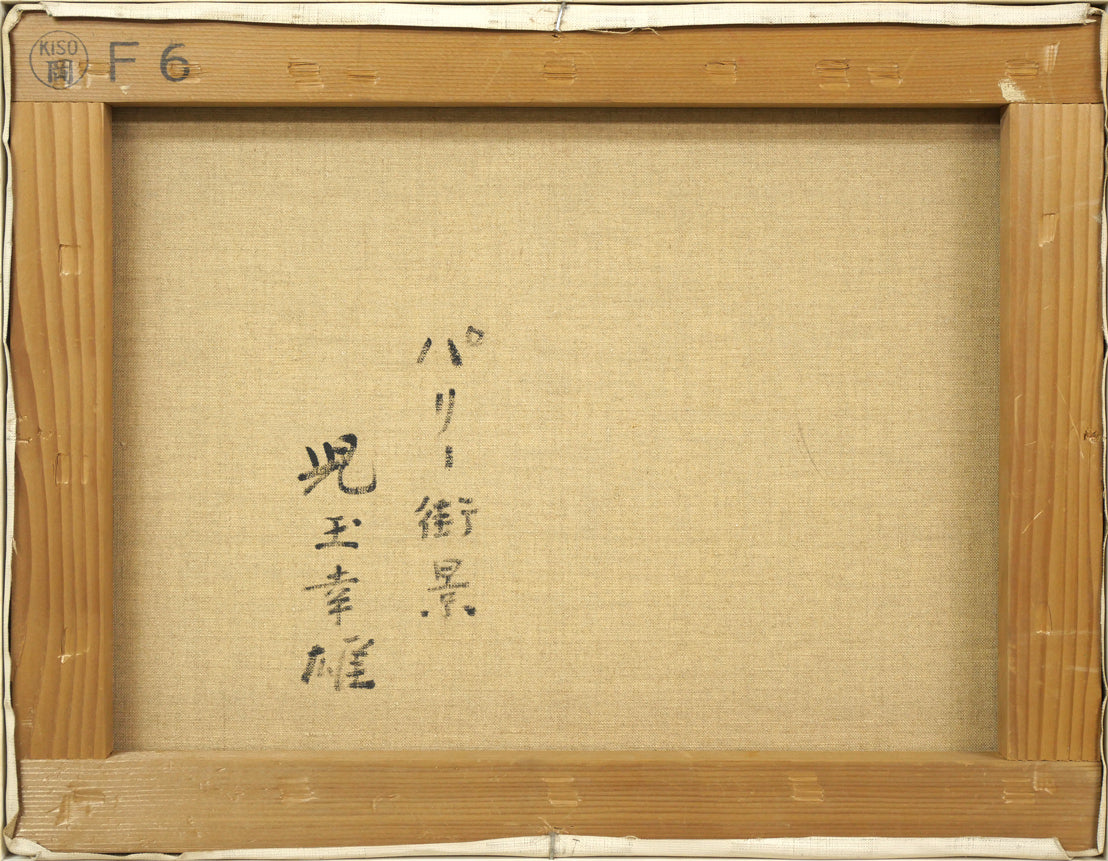 KISO
岡
F 6
パリー街景
児玉幸雄